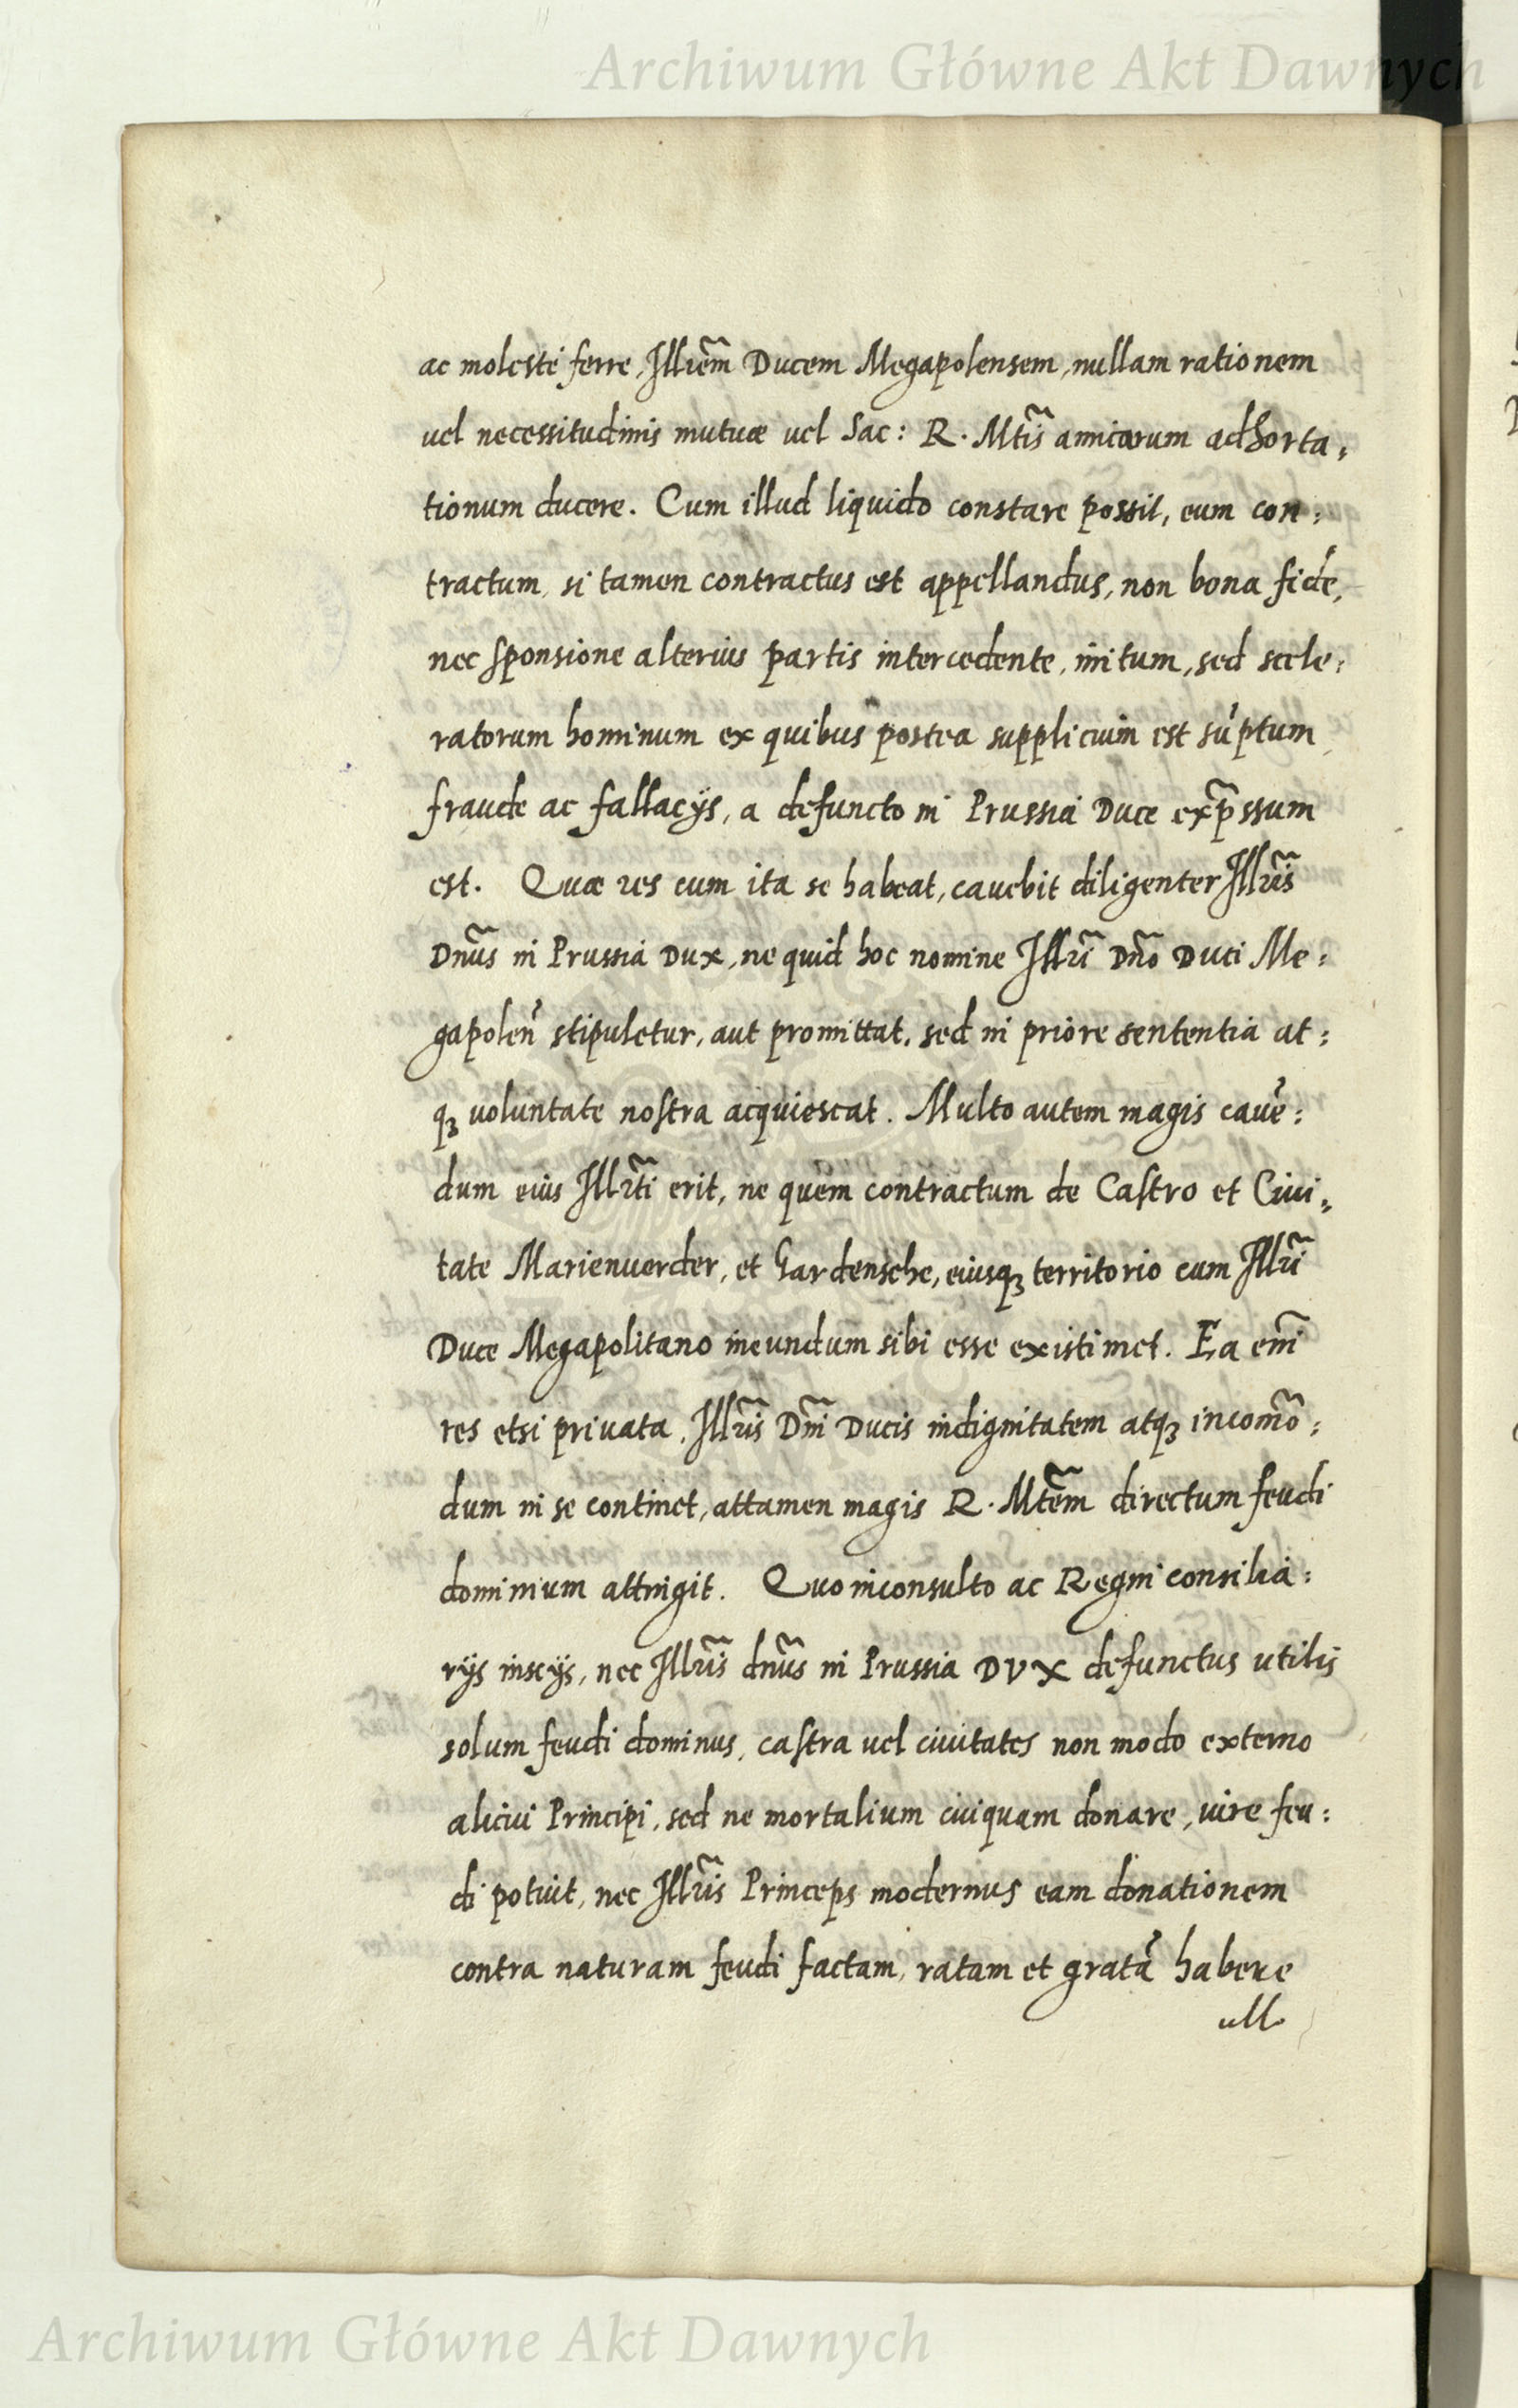 Archiwum Główne Akt Dawnych
ac molesté ferre, Illrẽm Ducem Megapolensem, nullam rationem
uel necessitudinis mutuæ uel Sac: R. Mtis̃ amicarum adhorta,
tionum ducere. Cum illud liquido constare possit, eum con:
tractum, si tamen contractus est appellandus, non bona fide,
nec sponsione alterius partis intercedente, initum, sed scele:
ratorum hominum ex quibus postea supplicium est sũptum
fraude ac fallacijs, a defuncto in Prussia Duce exp̃ssum
est. Quæ res cum ita se habeat, cauebit diligenter Illr̃is
Dnũs in Prussia Dux, ne quid hoc nomine Illrĩ Dño Duci Me:
gapoleñ stipuletur, aut promittat, sed in priore sententia at:
qꝫ uoluntate nostra acquiescat. Multo autem magis cauẽ:
dum eius Illr̃ti erit, ne quem contractum de Castro et Ciui,,
tate Marienuerder, et Gardensche, eiusqꝫ territorio cum Illrĩ
Duce Megapolitano ineundum sibi esse existimet. Ea enĩ
res etsi priuata, Illr̃is Dnĩ Ducis indignitatem atqꝫ incom̃o:
dum in se continet, attamen magis R. Mtẽm directum feudi
dominium attingit. Quo inconsulto ac Regni consilia:
rijs inscijs, nec Illr̃is dnũs in Prussia DVX defunctus utilis
solum feudi dominus, castra uel ciuitates non modo externo
alicui Principi, sed ne mortalium cuiquam donare, iure feu:
di potuit, nec Illr̃is Princeps modernus eam donationem
contra naturam feudi factam, ratam et gratã habere
ull
Archiwum Główne Akt Dawnych